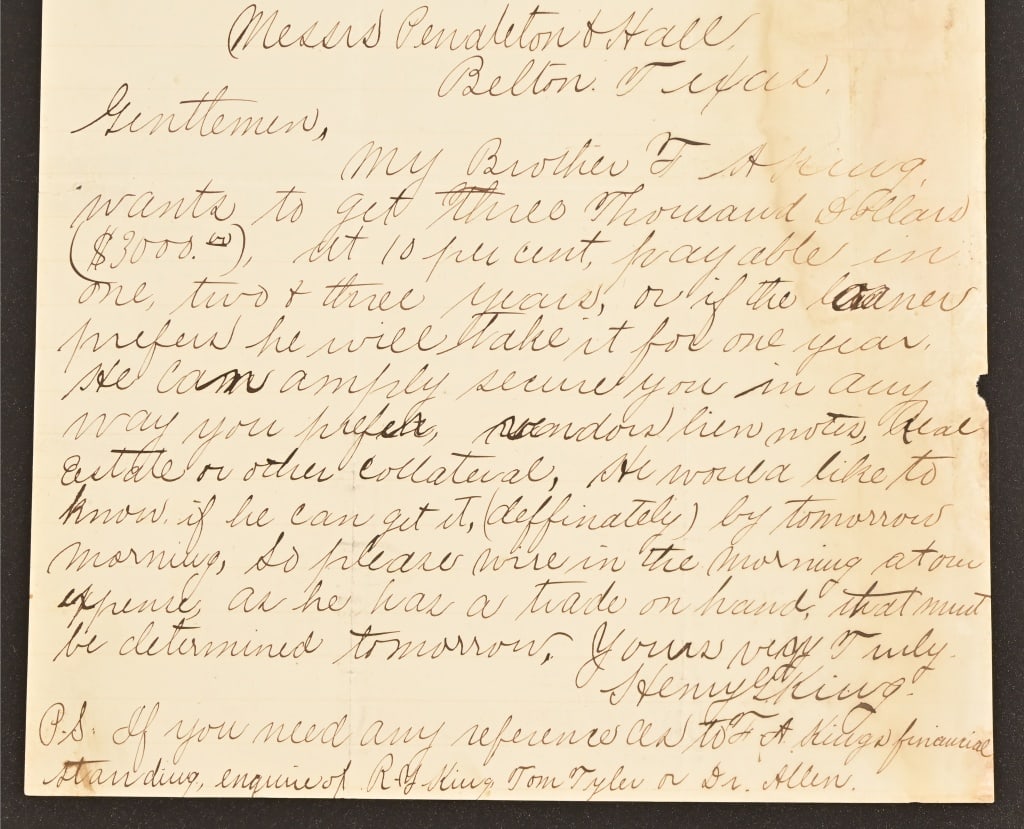 Messrs Pendleton & Hall,
Belton. Texas.
Gentlemen,
My Brother F A King,
wants to get three Thousand Dollars
($3000.00), at 10 per cent, payable in
one, two & three years, or if the loaner
prefers he will take it for one year.
He can amply secure you in any
way you prefer, vendors lien notes, Real
Estate or other collateral, He would like to
know if he can get it, (deffinately) by tomorrow
morning, So please wire in the morning at our
expense, as he has a trade on hand, that must
be determined tomorrow, Yours very Truly.
Henry King.
P.S. If you need any references as to F A Kings financial
standing, enquire of R Y King, Tom Tyler or Dr. Allen.